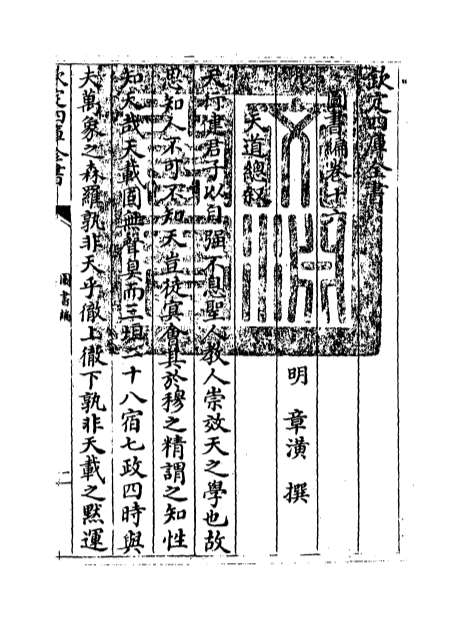 欽定四庫全書
圖書編卷十六
明 章潢 撰
天道總敘
天行健君子以自強不息聖人教人崇效天之學也故
思知人不可不知天豈徒冥會其於穆之精謂之知性
知天哉天載固無聲臭而三垣二十八宿七政四時與
夫萬象之森羅孰非天乎徹上徹下孰非天載之默運
欽定四庫全書
圖書編